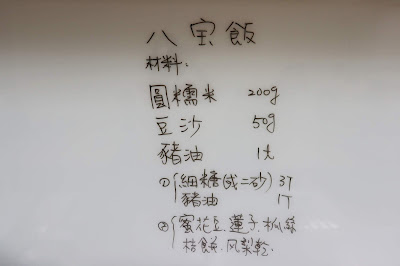 八宝飯
材料.
圓糯米 200g
豆沙 50g
豬油 1t
① 細糖(或二砂) 3T
豬油 1T
② 蜜花豆. 蓮子. 木瓜絲
桔餅. 风梨乾.